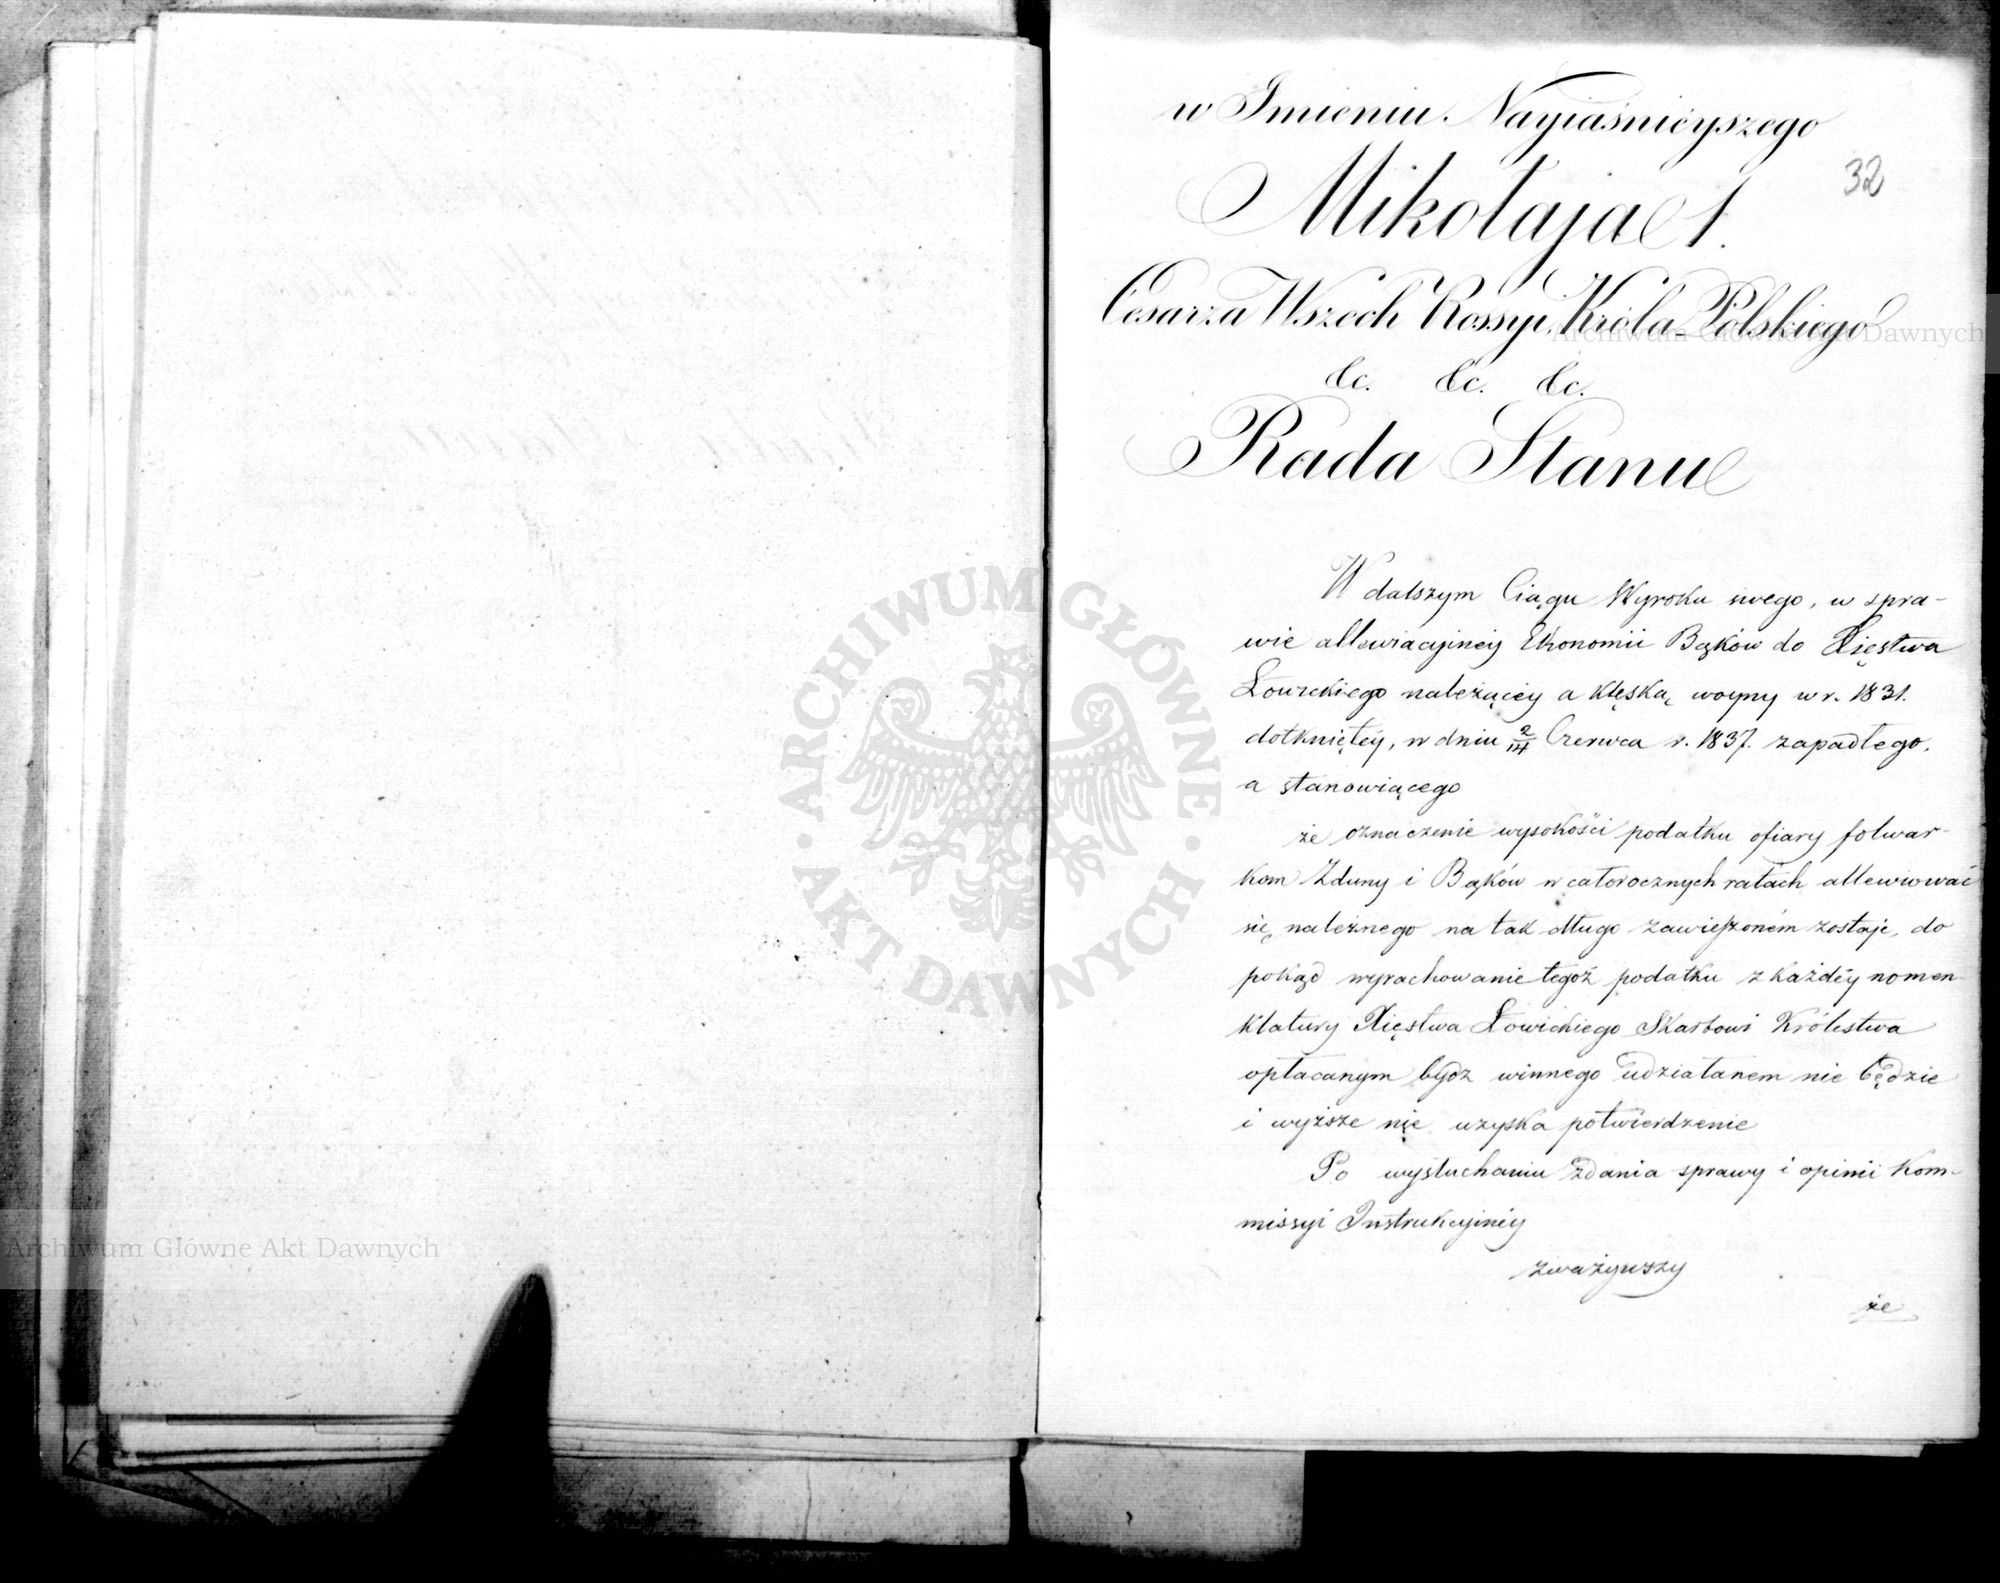 w Imieniu Nayiaśnieyszego
32
Mikołaja 1.
Cesarza Wszech Rossyi, Króla Polskiego
&c. &c. &c.
Rada Stanu
W dalszym Ciągu Wyroku swego, w spra-
wie allewiacyinéy Ekonomii Bąków do Xięstwa
Łowickiego należącéy a klęską woyny w r. 1831.
dotkniętéy, w dniu 2/14 Czerwca r. 1837. zapadłego,
a stanowiącego
że oznaczenie wysokości podatku ofiary folwar-
kom Zduny i Bąków w całorocznych ratach allewiować
się należnego na tak długo zawieszoném zostaje, do
pokąd wyrachowanie tegoż podatku z każdéy nomen
klatury Xięstwa Łowickiego Skarbowi Królestwa
opłacanym bydz winnego udziałanem nie będzie
i wyższe nie uzyska potwierdzenie
Po wysłuchaniu zdania sprawy i opinii Kom-
missyi Instrukcyinéy
zważywszy
że
Archiwum Główne Akt Dawnych
Archiwum Główne Akt Dawnych
ARCHIWUM GŁÓWNE · AKT DAWNYCH ·